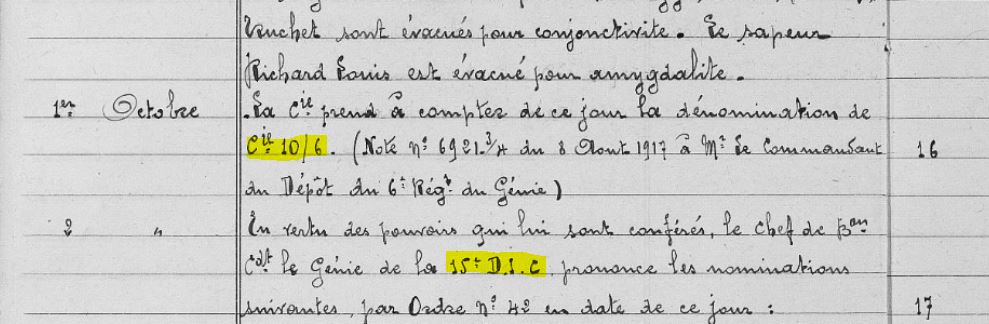 Vuchet sont évacués pour conjonctivite. Le sapeur
Richard Louis est évacué pour amygdalite.
1er Octobre . La Cie prend à compter de ce jour la dénomination de
Cie 10/6. (Note n° 6921.3/4 du 8 Aout 1917 à Mr le Commandant 16
du Dépôt du 6e Régt du Génie)
2 " En vertu des pouvoirs qui lui sont conférés, le chef de Bon
Cdt le Génie de la 15e D.I.C, prononce les nominations
suivantes, par Ordre n° 42 en date de ce jour : 17